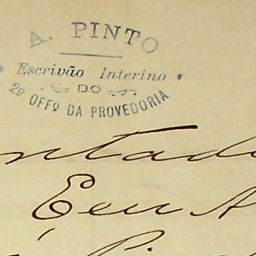 A. PINTO
Escrivão Interino
DO
2º OFFº DA PROVEDORIA
Eeu A